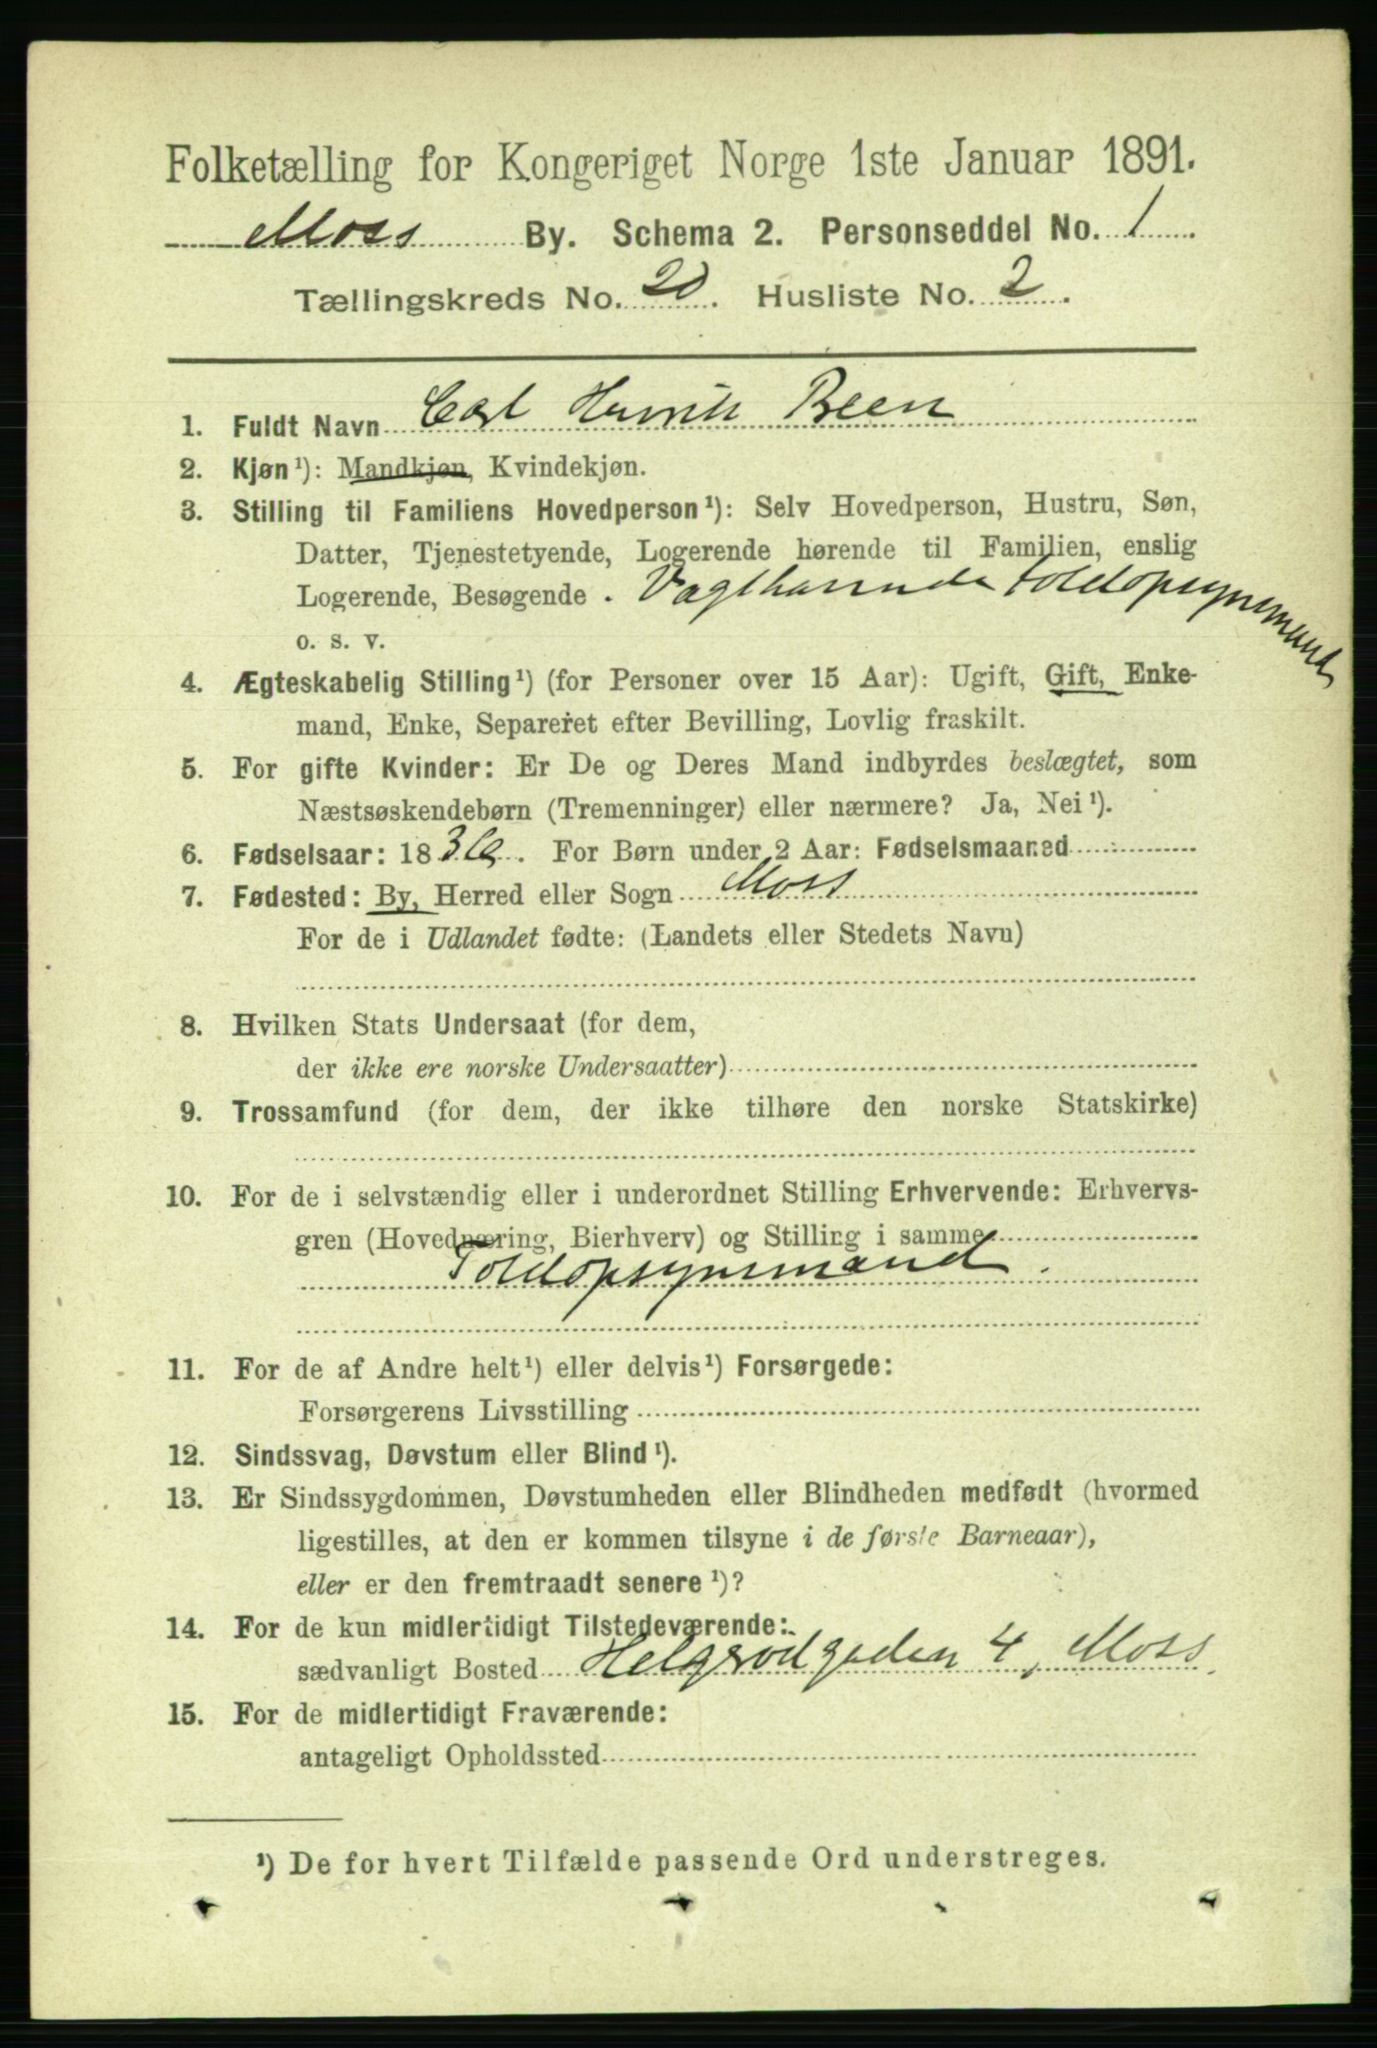 Folketælling for Kongeriget Norge 1ste Januar 1891.
Moss By. Schema 2. Personseddel No. 1.
Tællingskreds No. 20. Husliste No. 2.
1. Fuldt Navn Carl Henrik Been
2. Kjøn¹): Mandkjøn, Kvindekjøn.
3. Stilling til Familiens Hovedperson¹): Selv Hovedperson, Hustru, Søn,
Datter, Tjenestetyende, Logerende hørende til Familien, enslig
Logerende, Besøgende . Vagthavende Toldopsynsmand
o. s. v.
4. Ægteskabelig Stilling¹) (for Personer over 15 Aar): Ugift, Gift, Enke-
mand, Enke, Separeret efter Bevilling, Lovlig fraskilt.
5. For gifte Kvinder: Er De og Deres Mand indbyrdes beslægtet, som
Næstsøskendebørn (Tremenninger) eller nærmere? Ja, Nei¹).
6. Fødselsaar: 1836. For Børn under 2 Aar: Fødselsmaaned
7. Fødested: By, Herred eller Sogn Moss
For de i Udlandet fødte: (Landets eller Stedets Navn)
8. Hvilken Stats Undersaat (for dem,
der ikke ere norske Undersaatter)
9. Trossamfund (for dem, der ikke tilhøre den norske Statskirke)
10. For de i selvstændig eller i underordnet Stilling Erhvervende: Erhvervs-
gren (Hovednæring, Bierhverv) og Stilling i samme
Toldopsynsmand.
11. For de af Andre helt¹) eller delvis¹) Forsørgede:
Forsørgerens Livsstilling
12. Sindssvag, Døvstum eller Blind¹).
13. Er Sindssygdommen, Døvstumheden eller Blindheden medfødt (hvormed
ligestilles, at den er kommen tilsyne i de første Barneaar),
eller er den fremtraadt senere¹)?
14. For de kun midlertidigt Tilstedeværende:
sædvanligt Bosted Helgerødgaden 4, Moss.
15. For de midlertidigt Fraværende:
antageligt Opholdssted
¹) De for hvert Tilfælde passende Ord understreges.